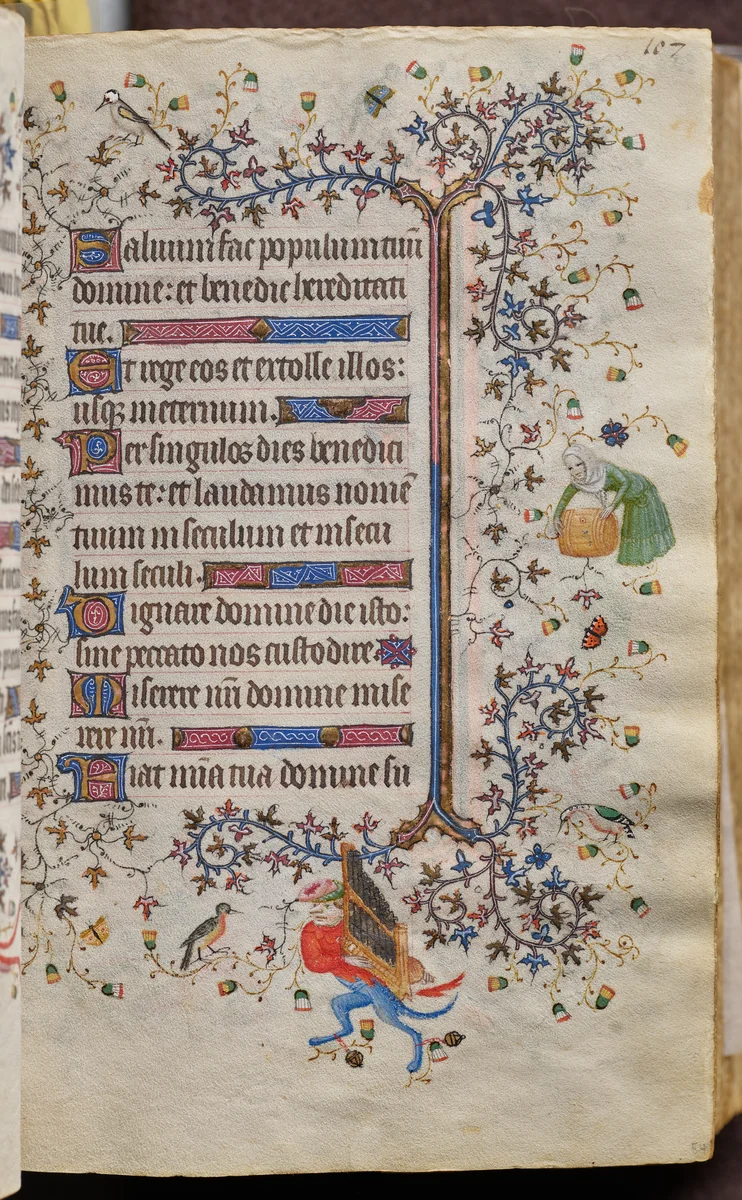 107
Saluum fac populum tuū
domine: et benedic hereditati
tue.
Et rege eos et extolle illos:
usqȝ in eternum.
Per singulos dies benedici
mus te: et laudamus nomē
tuum in seculum et in secu
lum seculi.
Dignare domine die isto:
sine peccato nos custodire.
Miserere nr̄i domine mise
rere nr̄i.
Fiat mīa tua domine su
54